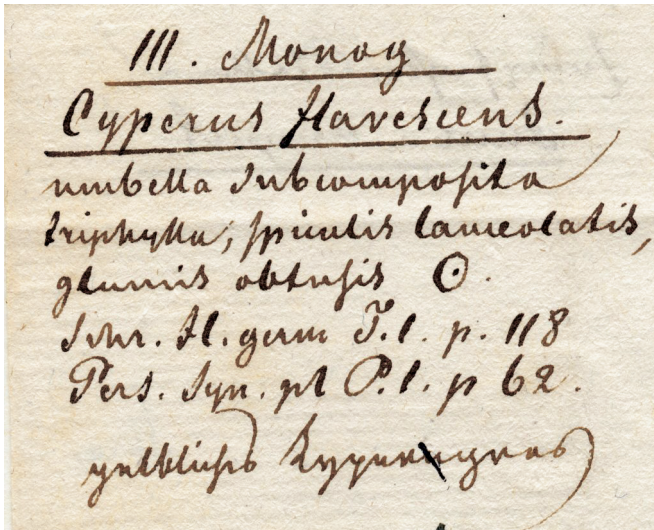 III. Monog
Cyperus flavescens.
umbella subcomposita
triphylla, spiculis lanceolatis,
glumis obtusis ☉.
Schr. fl. germ T. 1. p. 118
Pers. Syn. pl P. 1. p 62.
gelbliches Kyperngras